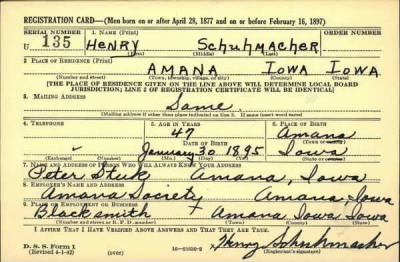 REGISTRATION CARD—(Men born on or after April 28, 1877 and on or before February 16, 1897)
SERIAL NUMBER 1. NAME (Print)
U 135 HENRY Schuhmacher
(First) (Middle) (Last)
2. PLACE OF RESIDENCE (Print)
AMANA IOWA IOWA
(Number and street) (Town, township, village, or city) (County) (State)
[THE PLACE OF RESIDENCE GIVEN ON THE LINE ABOVE WILL DETERMINE LOCAL BOARD
JURISDICTION; LINE 2 OF REGISTRATION CERTIFICATE WILL BE IDENTICAL]
3. MAILING ADDRESS
Same
[Mailing address if other than place indicated on line 2. If same insert word same]
4. TELEPHONE 5. AGE IN YEARS 6. PLACE OF BIRTH
47 Amana
DATE OF BIRTH (Town or county)
January 30 1895 Iowa
(Exchange) (Number) (Mo.) (Day) (Yr.) (State or country)
7. NAME AND ADDRESS OF PERSON WHO WILL ALWAYS KNOW YOUR ADDRESS
Peter Stuk Amana, Iowa
8. EMPLOYER'S NAME AND ADDRESS
Amana Society Amana, Iowa
9. PLACE OF EMPLOYMENT OR BUSINESS
Blacksmith Amana Iowa Iowa
(Number and street or R. F. D. number) (Town) (County) (State)
I AFFIRM THAT I HAVE VERIFIED ABOVE ANSWERS AND THAT THEY ARE TRUE.
D. S. S. Form 1
(Revised 4-1-42) (over) Henry Schuhmacher
(Registrant's signature)